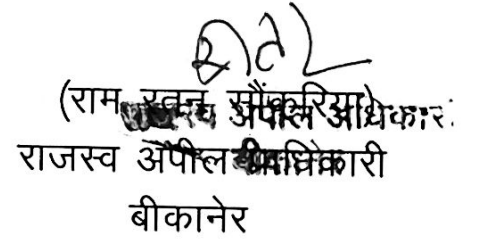 (राम रतन सौंकरिया)
राजस्व अपील अधिकारी
राजस्व अपील अधिकारी
बीकानेर